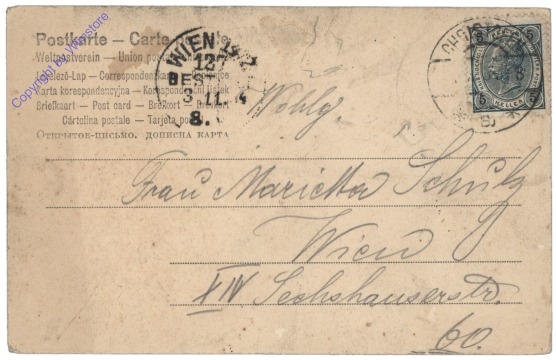 Postkarte – Carte
Weltpostverein – Union postale
Levelező-Lap – Correspondenzkarte
Karta korespondencyjna – Korespondenční lístek
Briefkaart – Post card – Brevkort – Brefkort
Cartolina postale – Tarjeta postal
Открытое письмо.
Copyright by
WIEN
127
BEST
3. 11.
8.
5 5
HELLER
Wohlg.
Frau Marietta Schulz
Wien
XIV Sechshauserstr.
60.